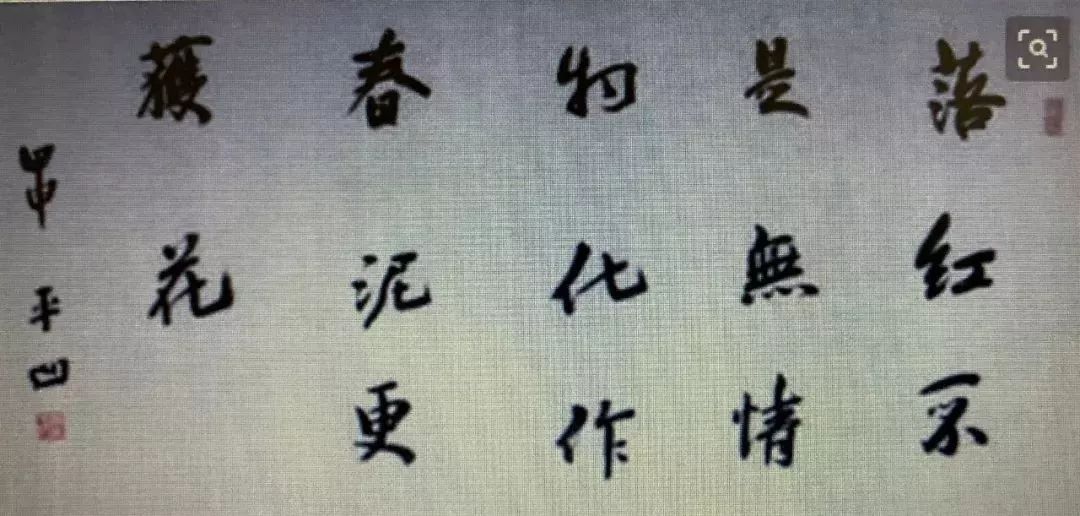 落红不
是無情
物化作
春泥更
護花
贾平凹